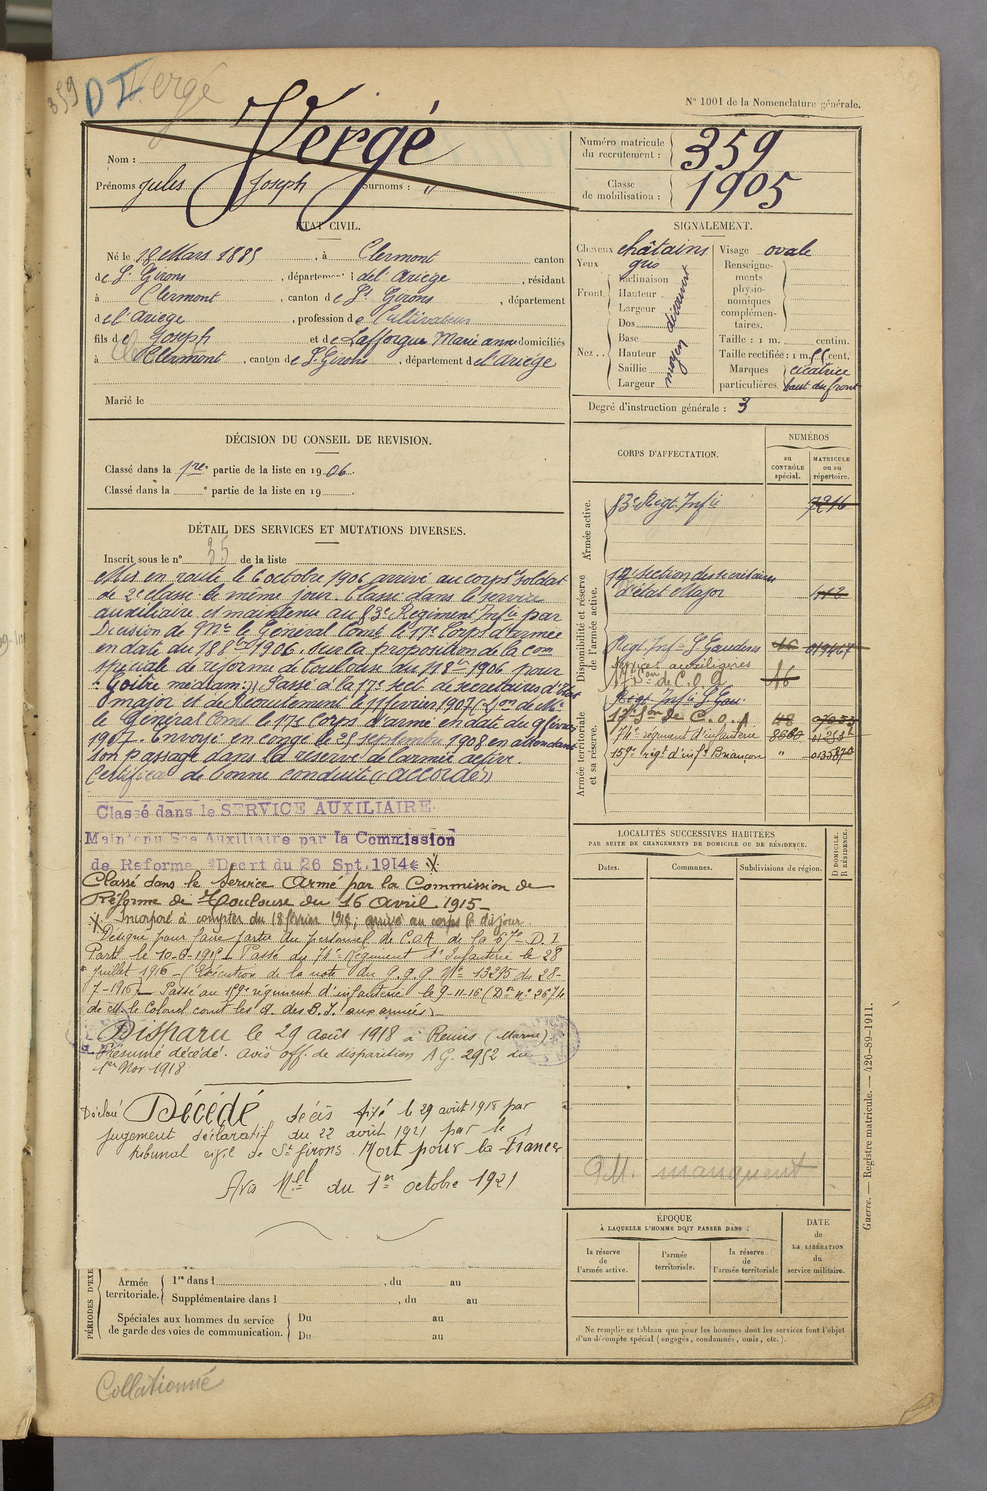 359 D Vergé
N° 1001 de la Nomenclature générale.
Nom : Vergé
Prénoms Jules Joseph Surnoms : "
Numéro matricule du recrutement : 359
Classe de mobilisation : 1905
ÉTAT CIVIL.
Né le 12 Mars 1885, à Clermont canton
de St Girons, département de l'Ariège, résidant
à Clermont, canton de St Girons, département
de l'Ariège, profession de Cultivateur
fils de Joseph et de Lafforgue Marie Anne domiciliés
à Clermont, canton de St Girons, département de l'Ariège
Marié le
SIGNALEMENT.
Cheveux châtains
Yeux gris
Front. Inclinaison
Hauteur
Largeur
découvert
Nez. Dos
Base
Hauteur
Saillie
Largeur
moyen
Visage ovale
Renseignements physionomiques complémentaires.
Taille : 1 m. centim.
Taille rectifiée : 1 m. 55 cent.
Marques particulières. cicatrice haut du front
Degré d'instruction générale : 3
DÉCISION DU CONSEIL DE REVISION.
Classé dans la 1re partie de la liste en 1906.
Classé dans la e partie de la liste en 19 .
DÉTAIL DES SERVICES ET MUTATIONS DIVERSES.
Inscrit sous le n° 35 de la liste
Mis en route le 6 octobre 1906 arrivé au corps et soldat
de 2e classe le même jour. Classé dans le service
auxiliaire et maintenu au 83e Régiment Infie par
Décision de Mr le Général Comt le 17e Corps d'armée
en date du 18 8bre 1906. sur la proposition de la com
spéciale de réforme de Toulouse du 18 8bre 1906 pour
"Goitre médian". Passé à la 17e Sect de secrétaires d'état
major et de Recrutement le 11 février 1907 (Don de Mr
le Général Comt le 17e Corps d'armée en date du 9 février
1907. Envoyé en congé le 25 septembre 1908 en attendant
son passage dans la réserve de l'armée active.
Certificat de bonne conduite "accordé"
Classé dans le SERVICE AUXILIAIRE
Maintenu Sce Auxiliaire par la Commission
de Réforme Décrt du 26 Spt. 1914
Classé dans le Service Armé par la Commission de
Réforme de Toulouse du 16 Avril 1915
Incorporé à compter du 18 février 1915; arrivé au corps le dit jour.
Désigné pour faire partie du personnel de C.O.A de la 67e D.I
Parti le 10-6-1915. Passé au 74e Régiment d'Infanterie le 28
Juillet 1916 (Exécution de la note du G.Q.G N° 13295 du 28-
7-1916). Passé au 159e régiment d'infanterie le 9-11-16 (Don n° 3674
de M. le Colonel comt les d. des B.I. aux armées)
Disparu le 29 août 1918 à Reims (Marne)
Présumé décédé. avis off. de disparition AG. 2952 du
1er Nov 1918
Déclaré Décédé décès fixé le 29 août 1918 par
jugement déclaratif du 22 avril 1921 par le
tribunal civil de St Girons. Mort pour la France
Avis Mel du 1er octobre 1921
CORPS D'AFFECTATION.
NUMÉROS
au CONTRÔLE spécial.
MATRICULE ou au répertoire.
Armée active.
83e Regt Infie 7216
Disponibilité et réserve de l'armée active.
17e Section des secrétaires
d'état Major 112
Regt Infie St Gaudens
Services auxiliaires
17e Son de C.O.A 16
Armée territoriale et sa réserve.
Regt Infie St Gau.
17e Son de C.O.A 48
74e régiment d'infanterie 8660
159e regt d'infie Briançon " 013870
LOCALITÉS SUCCESSIVES HABITÉES
PAR SUITE DE CHANGEMENTS DE DOMICILE OU DE RÉSIDENCE.
Dates. Communes. Subdivisions de région. D DOMICILE. R RÉSIDENCE.
G.M. manquent
ÉPOQUE
À LAQUELLE L'HOMME DOIT PASSER DANS :
la réserve de l'armée active. l'armée territoriale. la réserve de l'armée territoriale
DATE de LA LIBÉRATION du service militaire.
Ne remplir ce tableau que pour les hommes dont les services font l'objet
d'un décompte spécial (engagés, condamnés, omis, etc.).
PÉRIODES D'EXE
Armée territoriale. 1re dans l , du au
Supplémentaire dans l , du au
Spéciales aux hommes du service de garde des voies de communication. Du au
Du au
Guerre. — Registre matricule. — 426-89-1911.
Collationné